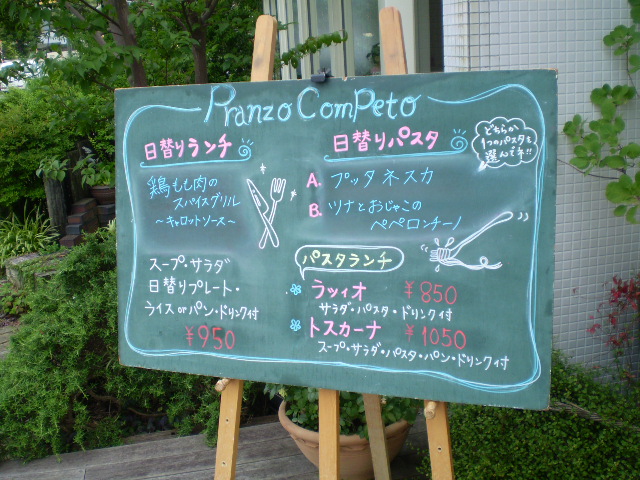 Pranzo ComPeto
日替りランチ
鶏もも肉の
スパイスグリル
～キャロットソース～
スープ・サラダ
日替りプレート・
ライス or パン・ドリンク付
￥950
日替りパスタ
どちらか
1つのパスタを
選んでネ!!
A. プッタネスカ
B. ツナとおじゃこの
ペペロンチーノ
パスタランチ
ラッィオ ￥850
サラダ・パスタ・ドリンク付
トスカーナ ￥1050
スープ・サラダ・パスタ・パン・ドリンク付